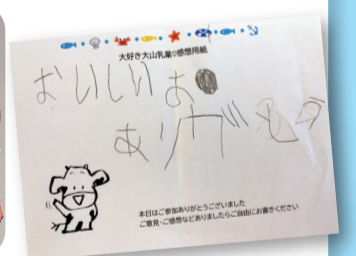 大好き大山乳業♡感想用紙
おいしいお
ありがとう
本日はご参加ありがとうございました
ご意見・ご感想などありましたらご自由にお書きください